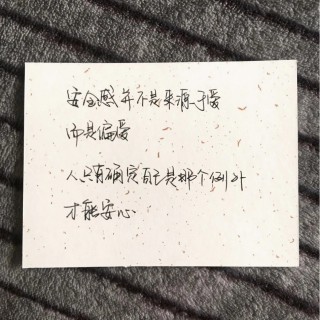 安全感并不是来源于爱
而是偏爱
人只有确定自己是那个例外
才能安心